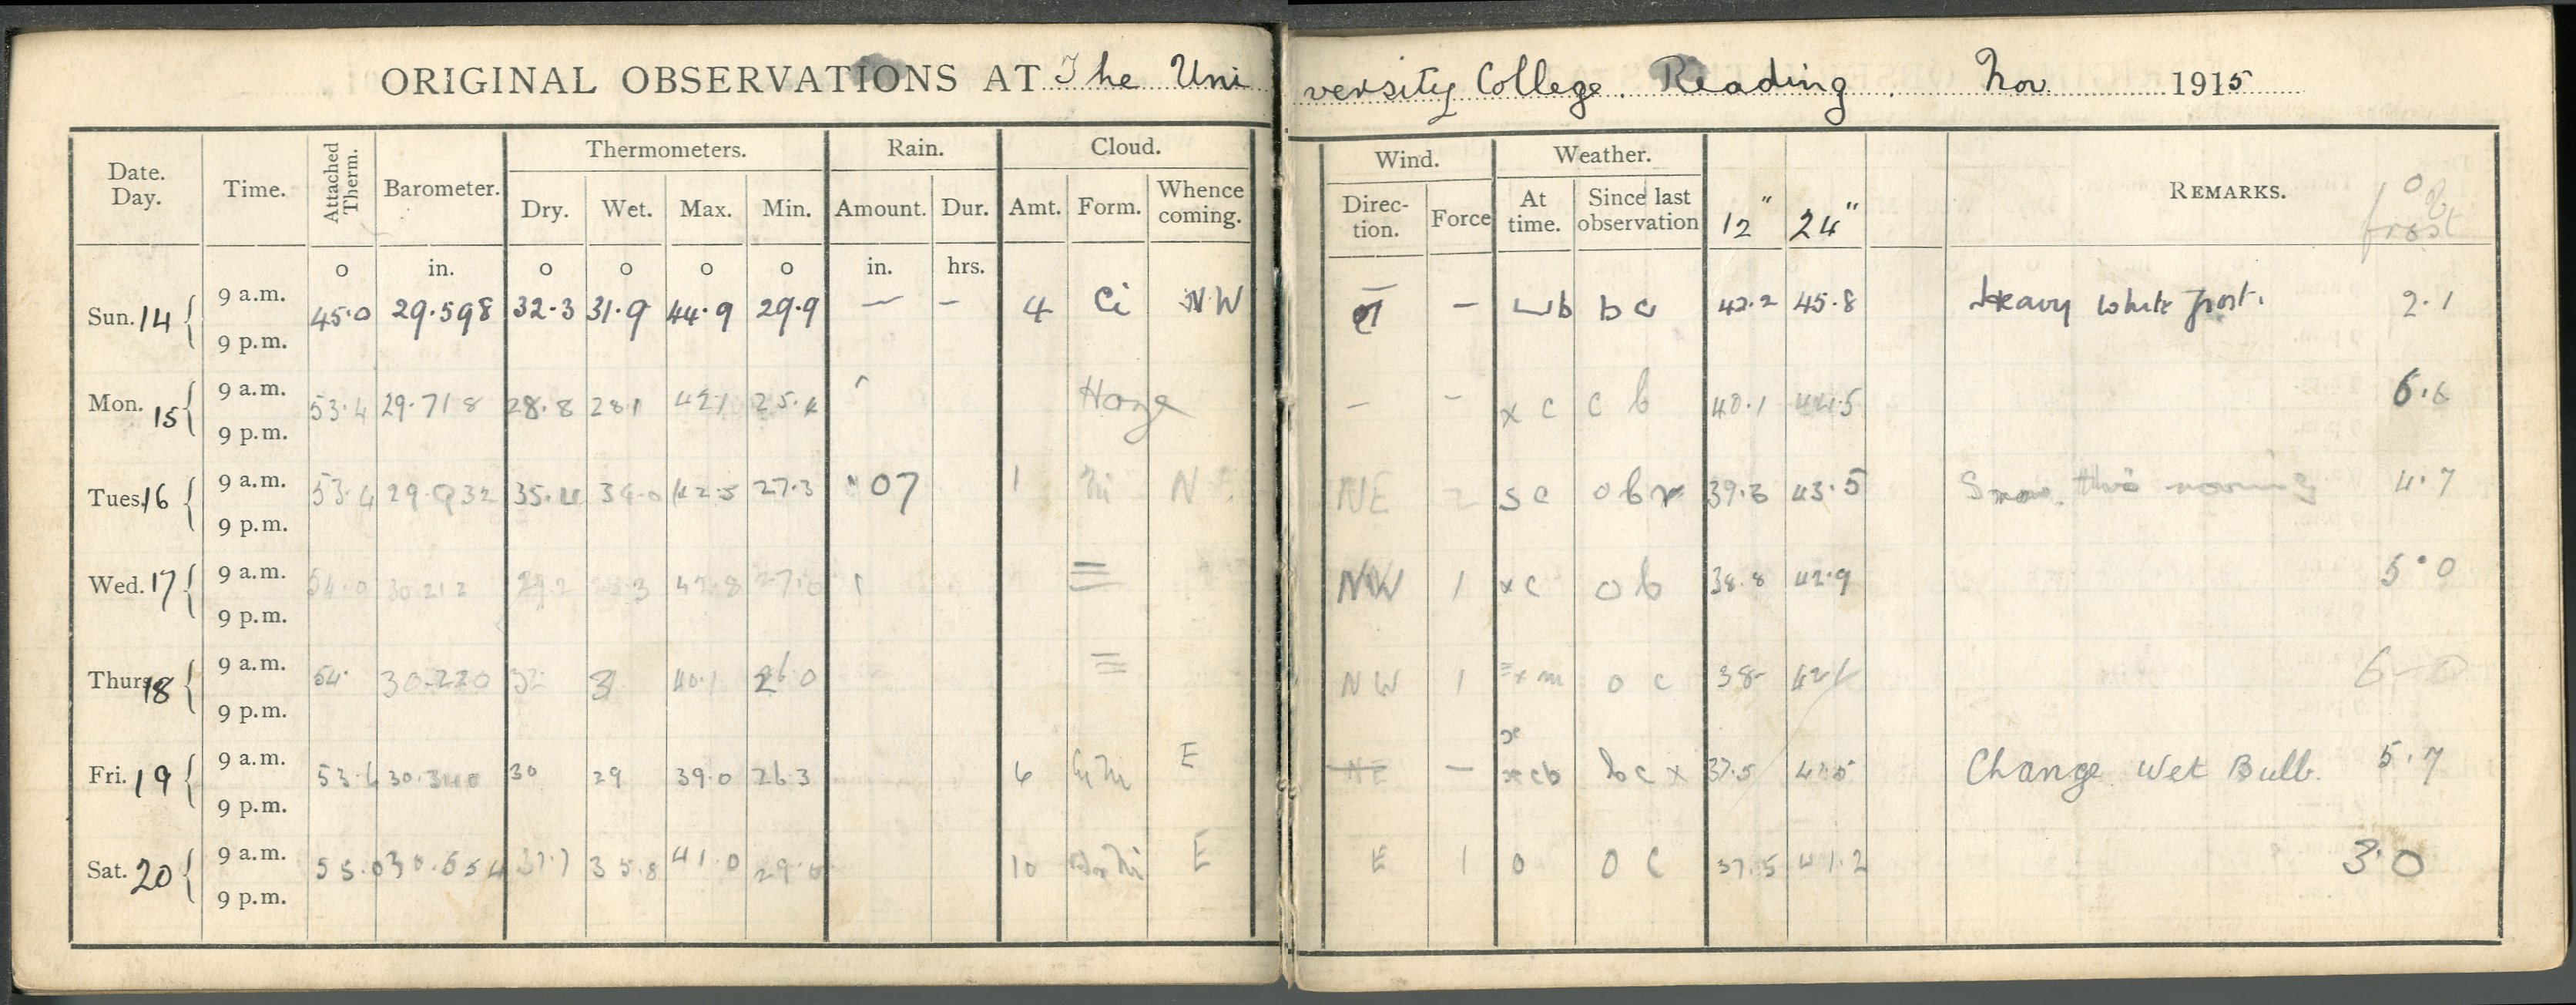 ORIGINAL OBSERVATIONS AT The University College. Reading. Nov. 1915
Date. Day. Time. Attached Therm. Barometer. Thermometers. Rain. Cloud. Wind. Weather. 12" 24" REMARKS. ° of frost
Dry. Wet. Max. Min. Amount. Dur. Amt. Form. Whence coming. Direction. Force At time. Since last observation
o in. o o o o in. hrs.
Sun. 14 9 a.m. 45.0 29.598 32.3 31.9 44.9 29.9 — – 4 Ci NW – b b c 42.2 45.8 Heavy white frost. 2.1
9 p.m.
Mon. 15 9 a.m. 53.4 29.718 28.8 28.1 42.1 25.4 Haze – – x c c b 40.1 44.5 6.6
9 p.m.
Tues. 16 9 a.m. 53.4 29.932 35.4 34.0 42.5 27.3 .07 1 Ni N NE 2 s c o b r 39.3 43.5 Snow this morning 4.7
9 p.m.
Wed. 17 9 a.m. 54.0 30.212 29.2 42.8 27.0 ≡ NW 1 x c o b 38.8 42.9 5.0
9 p.m.
Thurs. 18 9 a.m. 54. 30.220 32 31 40.1 26.0 ≡ NW 1 ≡ x m o c 38 42.1 6.0
9 p.m.
Fri. 19 9 a.m. 53.4 30.340 30 29 39.0 26.3 6 E NE — x c b b c x 37.5 41.5 Change Wet Bulb. 5.7
9 p.m.
Sat. 20 9 a.m. 55.0 30.654 37.7 35.8 41.0 29.0 10 E E 1 o o c 37.5 41.2 3.0
9 p.m.